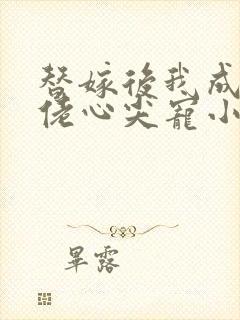 替嫁後我成
佬心尖寵小
畢露